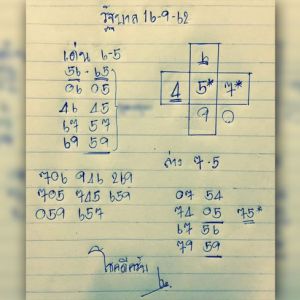 รัฐบาล 16-9-62
เด่น 6-5
6
56 - 65
4 5* 7*
06 05
9 0
46 45
67 57
69 59
ล่าง 7-5
706 946 269
705 745 659
059 657
07 54
74 05 75*
67 56
79 59
โชคดีครับ